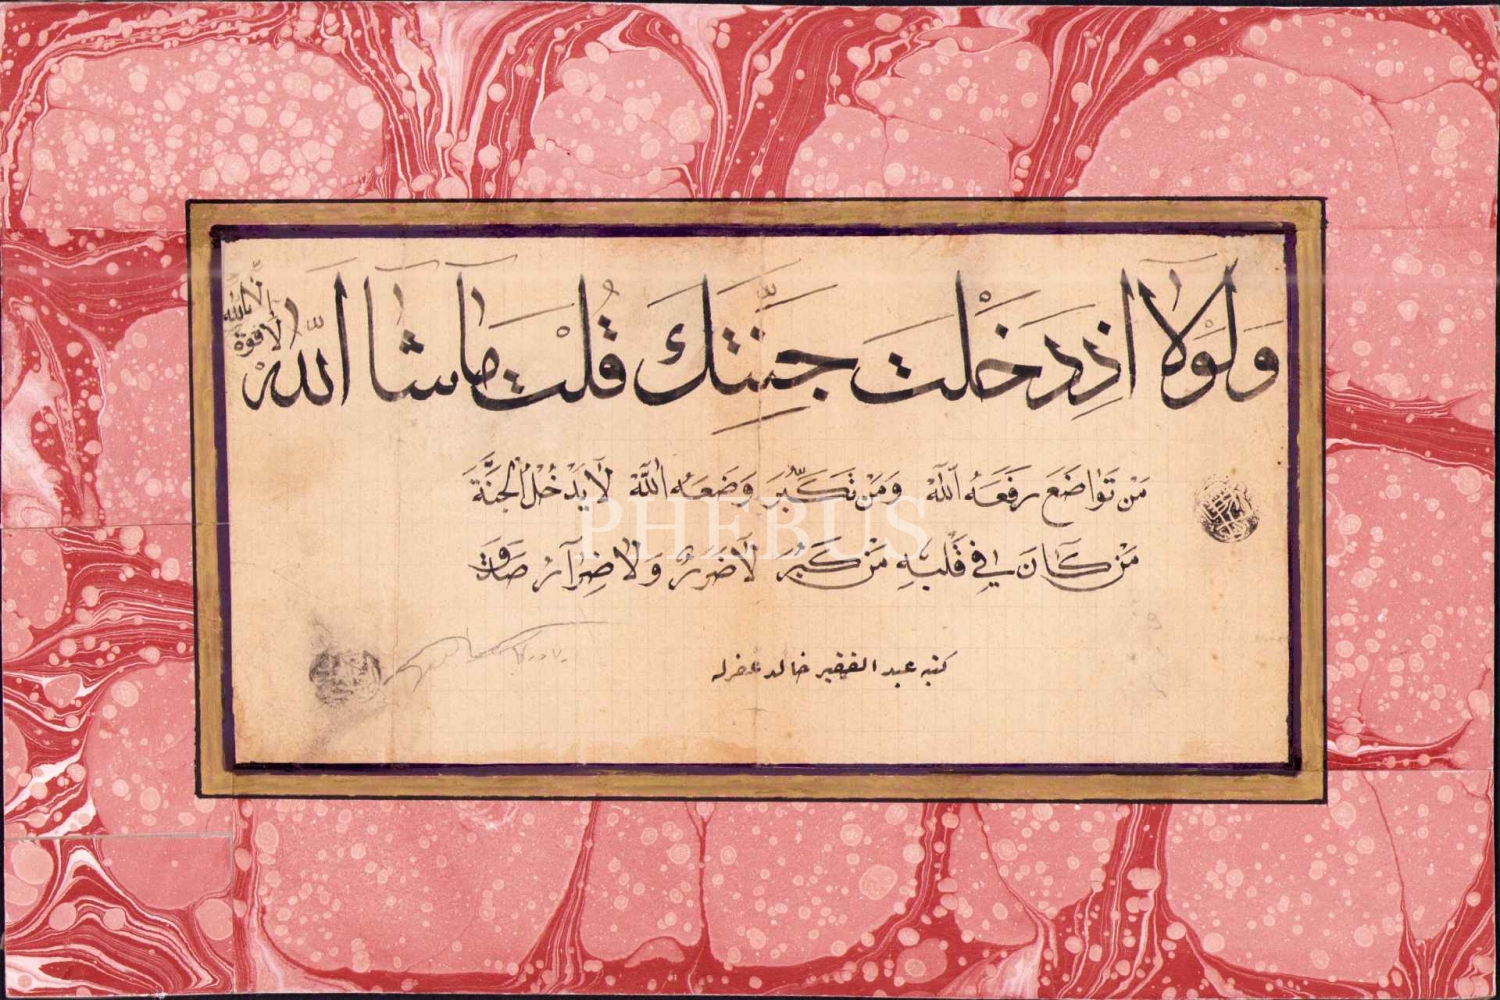 وَلَوْلَا اذِدَخَلْتَ جَنَّتَكَ قُلْتَ مَاشَا اللّٰهُ
لاقوة الا بالله
مَنْ تَوَاضَعَ رَفَعَهُ اللّٰهُ وَمَنْ تَكَبَّرَ وَضَعَهُ اللّٰهُ لَا يَدْخُلُ الْجَنَّةَ
مَنْ كَانَ فِي قَلْبِهِ مَنْ كَبَرُ لَا ضَرَرُ وَلَا ضِرَارُ صدق
كتبه عبد الفقير خالد غفرله
PHEBUS